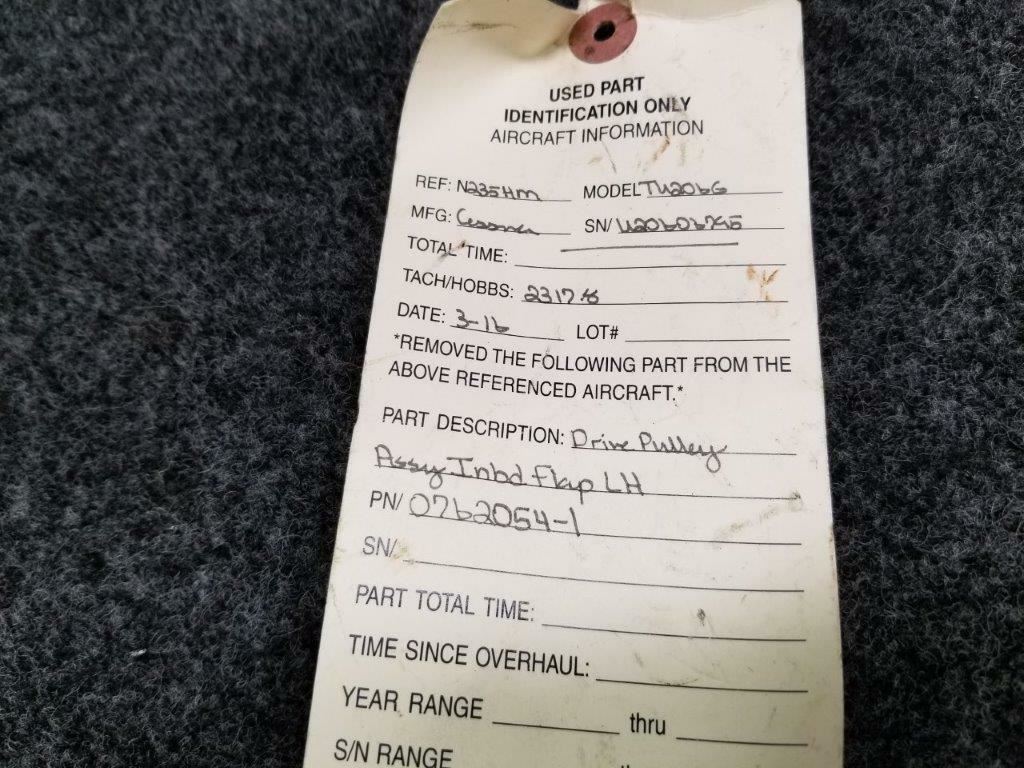 USED PART
IDENTIFICATION ONLY
AIRCRAFT INFORMATION
REF: N235HM MODEL TU206G
MFG: Cessna SN/ U20606745
TOTAL TIME:
TACH/HOBBS: 2317.8
DATE: 3-16 LOT#
*REMOVED THE FOLLOWING PART FROM THE
ABOVE REFERENCED AIRCRAFT.*
PART DESCRIPTION: Drive Pulley
Assy Inbd Flap LH
PN/ 0762054-1
SN/
PART TOTAL TIME:
TIME SINCE OVERHAUL:
YEAR RANGE thru
S/N RANGE